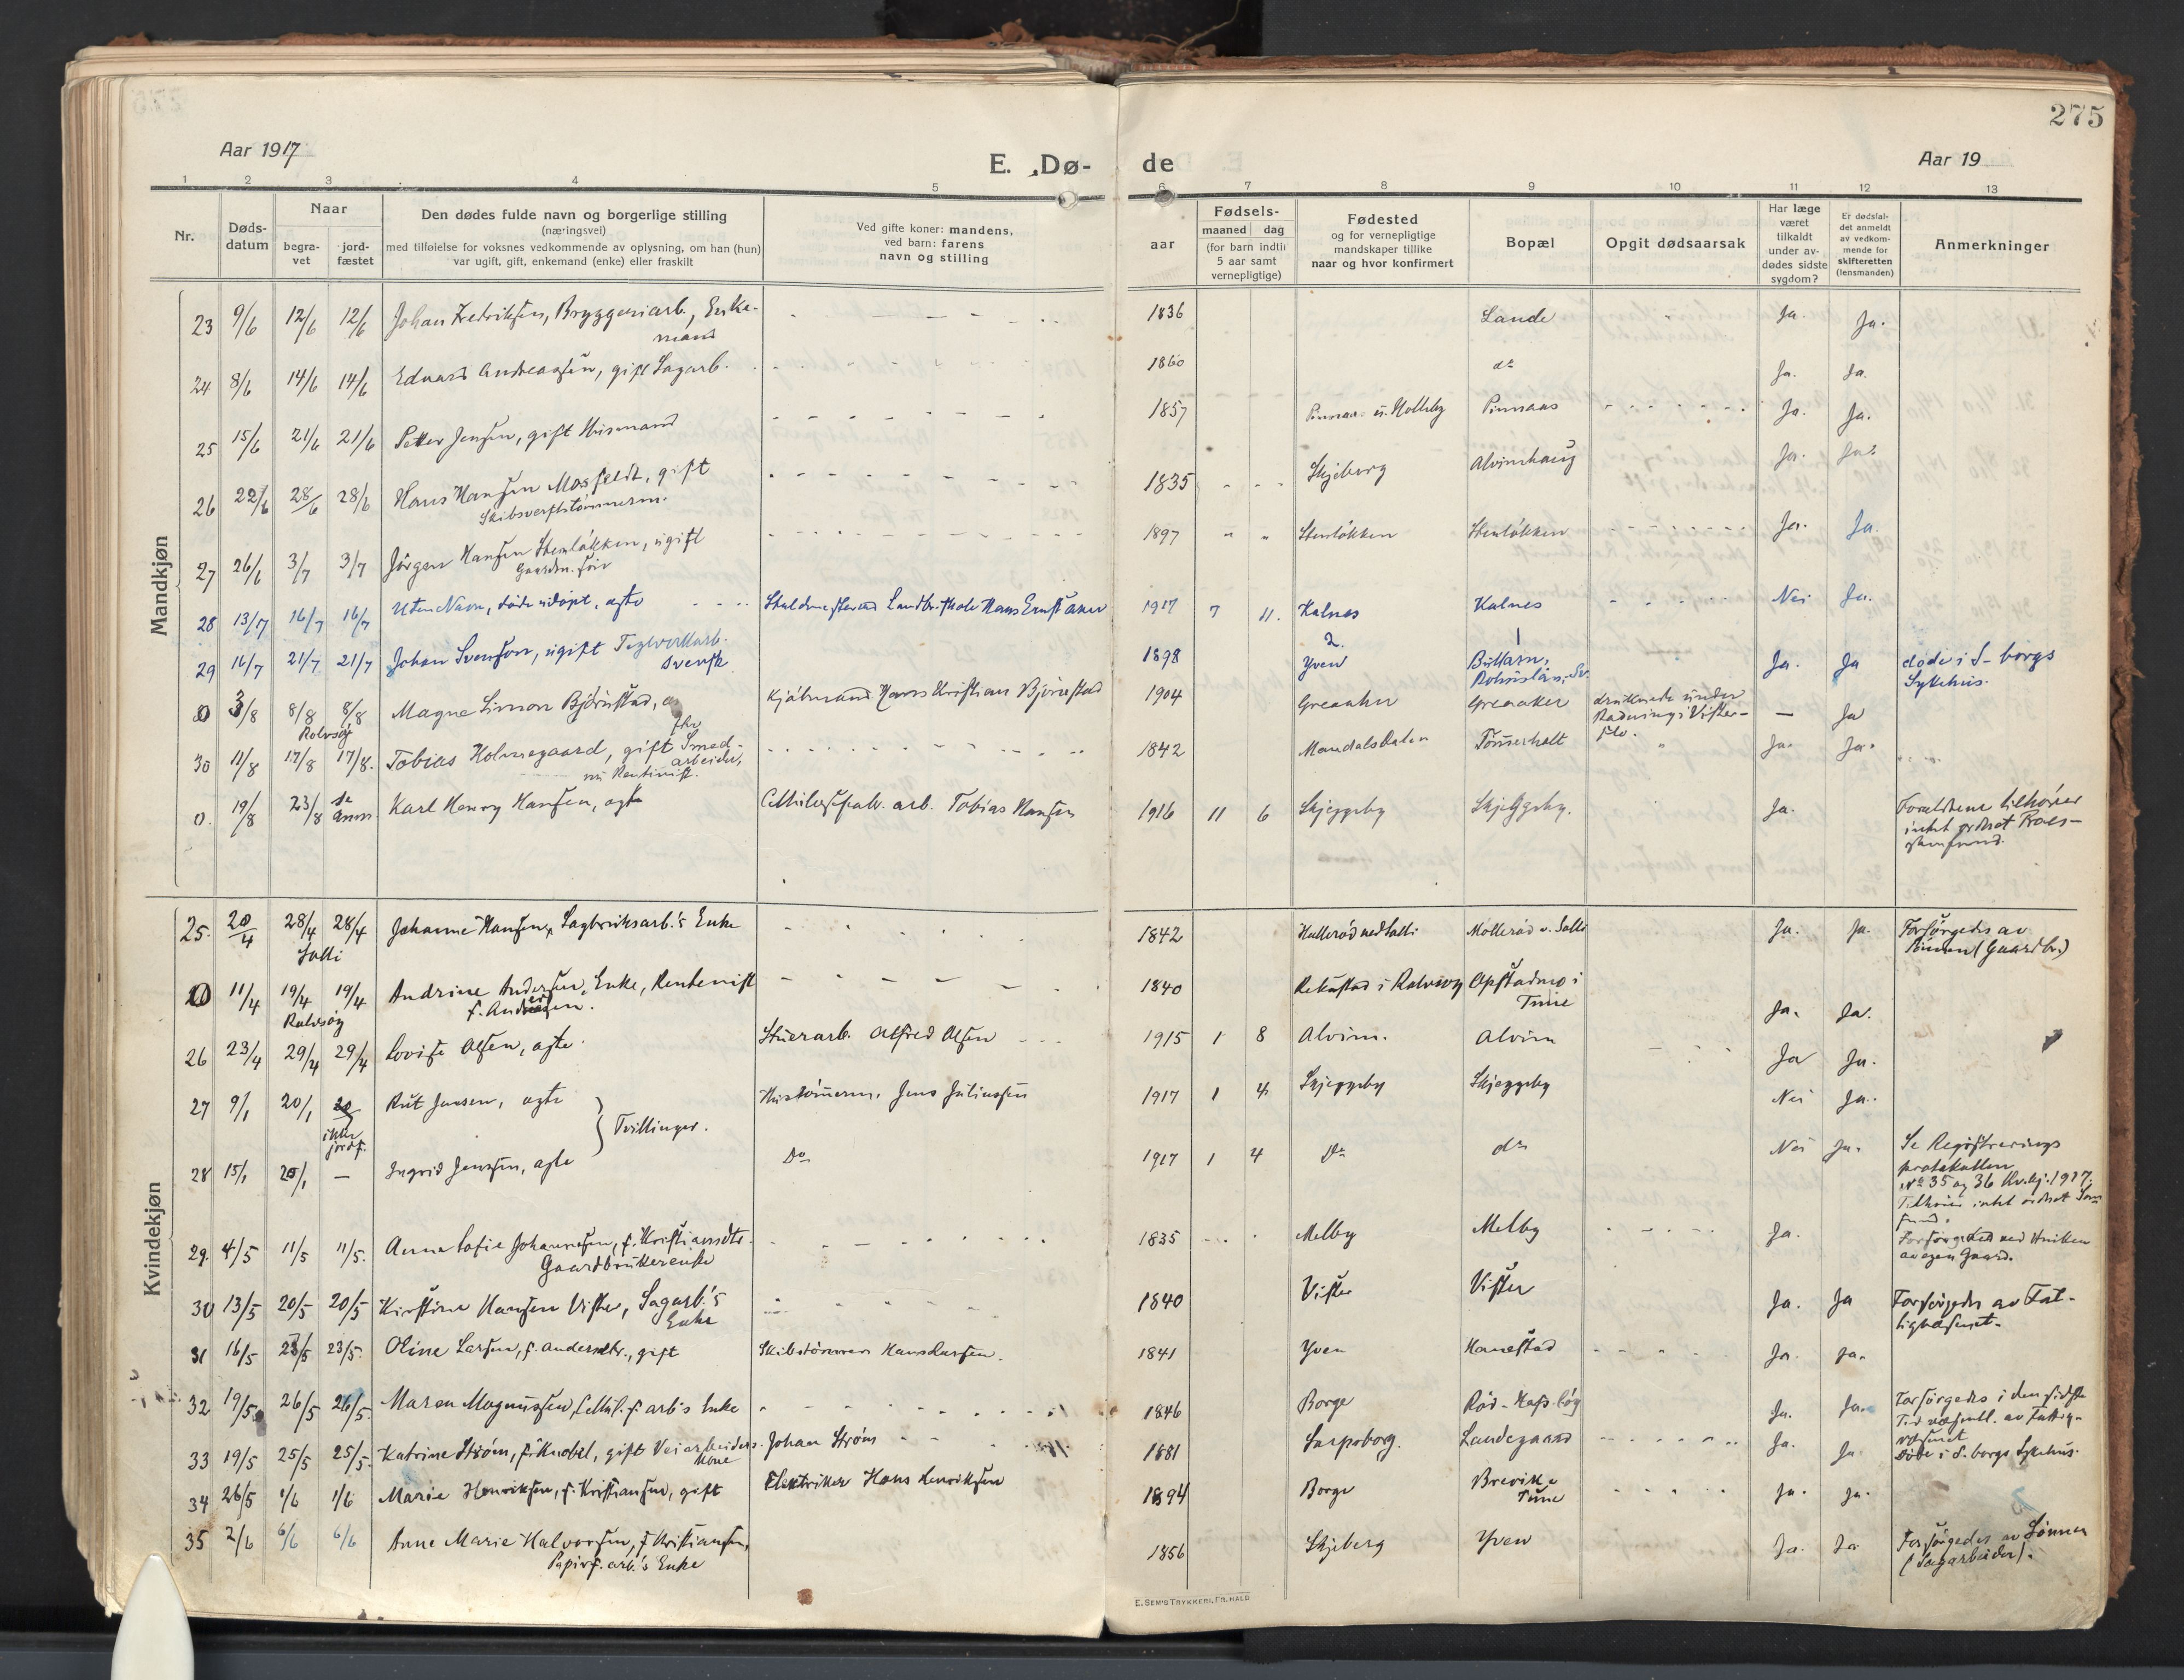 275
Aar 1917
E. Dø-
de
Aar 19
1 2 3 4 5 6 7 8 9 10 11 12 13
Nr.
Døds-
datum
Naar
begra-
vet
jord-
fæstet
Den dødes fulde navn og borgerlige stilling
(næringsvei)
med tilføielse for voksnes vedkommende av oplysning, om han (hun)
var ugift, gift, enkemand (enke) eller fraskilt
Ved gifte koner: mandens,
ved barn: farens
navn og stilling
aar
Fødsels-
maaned dag
(for barn indtil
5 aar samt
vernepligtige)
Fødested
og for vernepligtige
mandskaper tillike
naar og hvor konfirmert
Bopæl
Opgit dødsaarsak
Har læge
været
tilkaldt
under av-
dødes sidste
sygdom?
Er dødsfal-
det anmeldt
av vedkom-
mende for
skifteretten
(lensmanden)
Anmerkninger
Mandkjøn
23 9/6 12/6 12/6 Johan Fredriksen, Bryggeriarb., Enke- 1836 Lande Ja. Ja.
mand
24 8/6 14/6 14/6 Edvard Andreassen, gift Sagarb. 1860 do Ja. Ja.
25 15/6 21/6 21/6 Petter Jensen, gift Husmand 1857 Pinnaas u. Holleby Pinnaas Ja. Ja.
26 22/6 28/6 28/6 Hans Hansen Mosfeldt, gift 1835 Skjeberg Alvimhaug Ja. Ja.
Skibsverftstømmerm.
27 26/6 3/7 3/7 Jörgen Hansen Stenløkken, ugift 1897 Stenløkken Stenløkken Ja. Ja.
28 13/7 16/7 16/7 Uten Navn, døde udøpt, ægte Landbr.skole Hans Ernst Aaker 1917 7 11. Kalnes Kalnes Nei Ja.
29 16/7 21/7 21/7 Johan Svensson, ugift Teglverksarb. 1898 Yven Bullaren, Ja. Ja døde i S-borgs
svensk Sykehus.
0 3/8 8/8 8/8 Magne Simon Björnstad, Kjøbmand Hans Kristian Björnstad 1904 Greaaker Greaaker druknede under — Ja
Rolvsøy Badning i Vister-
flo.
30 11/8 17/8 17/8. Tobias Holmegaard, gift Smed- 1842 Mandalsdalen Tömmerholt Ja. Ja.
arbeider,
nu Rentenist.
0. 19/8 23/8 se Anm. Karl Henry Hansen, ægte Cellulosefabr. arb. Tobias Hansen 1916 11 6 Skjeggeby Skjeggeby. Ja. Foreldrene tilhörer
intet ordnet Troes-
samfund.
Kvindekjøn
25. 20/4 28/4 28/4 Johanne Hansen, Sagbruksarb.'s Enke 1842 Hallerød ved Solli Møllerød v. Solli Ja. Ja. Forsørgedes av
Solli Sønnen (Gaardbr.)
0 11/4 19/4 19/4 Andrine Andersen, Enke, Rentenist 1840 Rekustad i Rolvsøy Opstadmo i Ja. Ja.
Rolvsøy Tune
26 23/4 29/4 29/4 Lovise Olsen, ægte. Alfred Olsen 1915 1 8 Alvim. Alvim Ja Ja.
27 9/1 20/1 20 Rut Jensen, ægte Hustömerm. Jens Juliussen 1917 1 4 Skjeggeby Skjeggeby Nei Ja.
ikke
jordf.
Tvillinger.
28 15/1 20/1 — Ingrid Jensen, ægte Do 1917 1 4 Do do Nei Ja. Se Registrerings
protokollen
No 35 og 36 Kv.kj. 1917.
Tilhører intet ordnet Sam
fund.
29. 4/5 11/5 11/5. Anna Sofie Johannesen, f. Kristiansdtr. 1835 Melby Melby Ja. Forsørgedes ved
Gaardbrukerenke av egen Gaard.
30 13/5 20/5 20/5 Kirstine Hansen Vister, Sagarb.'s 1840 Vister Vister Ja. Ja Forsørgedes av Fat-
Enke tigvæsenet.
31 16/5 23/5 23/5. Oline Larsen, f. Andersdtr., gift Skibstömmerm Hans Larsen. 1841 Yven Hanestad Ja. Ja.
32 19/5 26/5 26/5. Maren Magnussen, Cellul. f. arb's Enke 1846 Borge Röd - Hafslöy Ja. Ja. Forsørgedes i den sidste
Tid væsentl. av Fattig-
væsenet
33 19/5 25/5 25/5. Katrine Strøm, f. Knobel, gift Veiarbeiders Johan Strøm 1881 Sarpsborg. Landegaard Ja. Ja. Døde i S.borgs Sykehus.
Kone
34 26/5 1/6 1/6 Marie Henriksen, f. Kristiansen, gift Elektriker Hans Henriksen 1894 Borge Brevik Ja. Ja.
Tune
35 2/6 6/6 6/6 Anne Marie Halvorsen, f. Kristiansen, 1856 Skjeberg Yven Ja. Ja Forsørgedes av Sønnen
Papirf. arb.'s Enke (Sagarbeider).
E. SEM'S TRYKKERI, FR.HALD